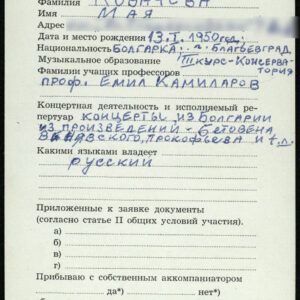 Фамилия
Имя МАЯ
Адрес
Дата и место рождения 13.I.1950год.
Национальность БОЛГАРКА. г. БЛАГБЕВГРАД
Музыкальное образование III КУРС-КОНСЕРВА-
ТОРИЯ
Фамилии учащих профессоров
ПРОФ. ЕМИЛ КАМИЛАРОВ
Концертная деятельность и исполняемый ре-
пертуар КОНЦЕРТЫ ИЗ БОЛГАРИИ
ИЗ ПРОИЗВЕДЕНИЙ - БЕТОВЕНА,
ПРОКОФЬЕВА И т.п.
Какими языками владеет
РУССКИЙ
Приложенные к заявке документы
(согласно статье II общих условий участия).
а)
б)
в)
г)
Прибываю с собственным аккомпаниатором
да*) нет*)